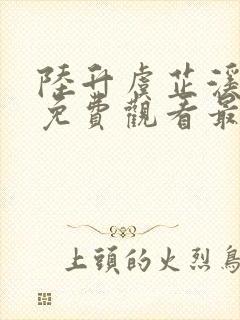 陸升虞芷溪
免費觀看最
上頭的火烈鳥